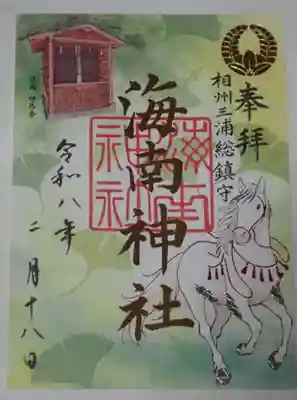 奉拝
相州三浦総鎮守
海南神社
令和八年
二月十八日